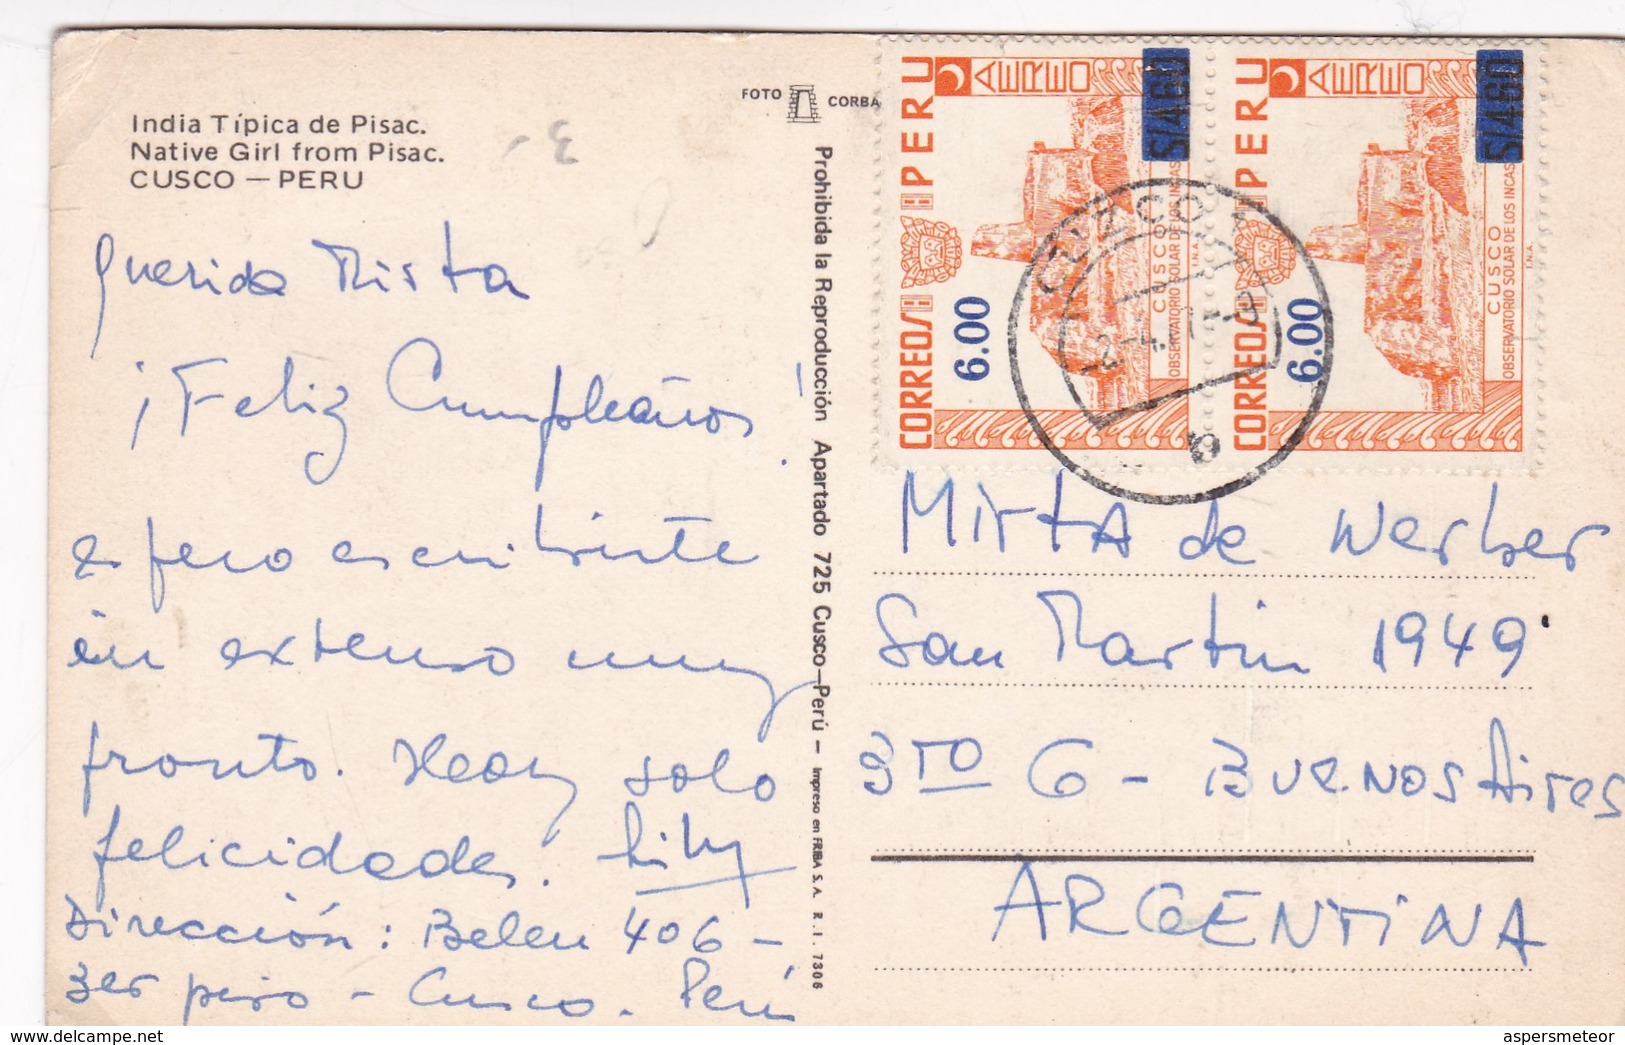 India Típica de Pisac.
Native Girl from Pisac.
CUSCO — PERU
3-
FOTO CORBA
Querida Mirta
¡Feliz Cumpleaños!
espero escribirte
en extenso muy
pronto. Hoy solo
felicidades. Lily
Dirección: Belen 406 -
3er piso - Cusco. Perú
Prohibida la Reproducción Apartado 725 Cusco—Perú — Impreso en FRIBA S.A. R.I. 7306
CORREOS PERU
AEREO
S/4.60
6.00
CUSCO
OBSERVATORIO SOLAR DE LOS INCAS
I.N.A.
CORREOS PERU
AEREO
S/4.60
6.00
CUSCO
OBSERVATORIO SOLAR DE LOS INCAS
I.N.A.
CUZCO
Mirta de Werber
San Martin 1949
3ro G - Buenos Aires
ARGENTINA
aspersmeteor